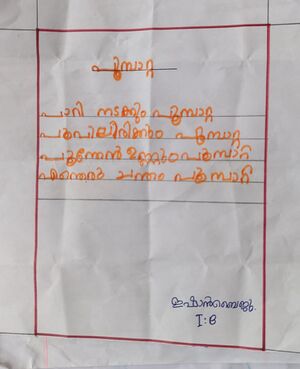 പൂമ്പാറ്റ
പാറി നടക്കും പൂമ്പാറ്റ
പൂമ്പാറ്റ
പൂന്തേൻ ഉണ്ണും പൂമ്പാറ്റ
എന്തൊരു ചന്തം പൂമ്പാറ്റ
ഇഷാൻബൈജു.
I:B